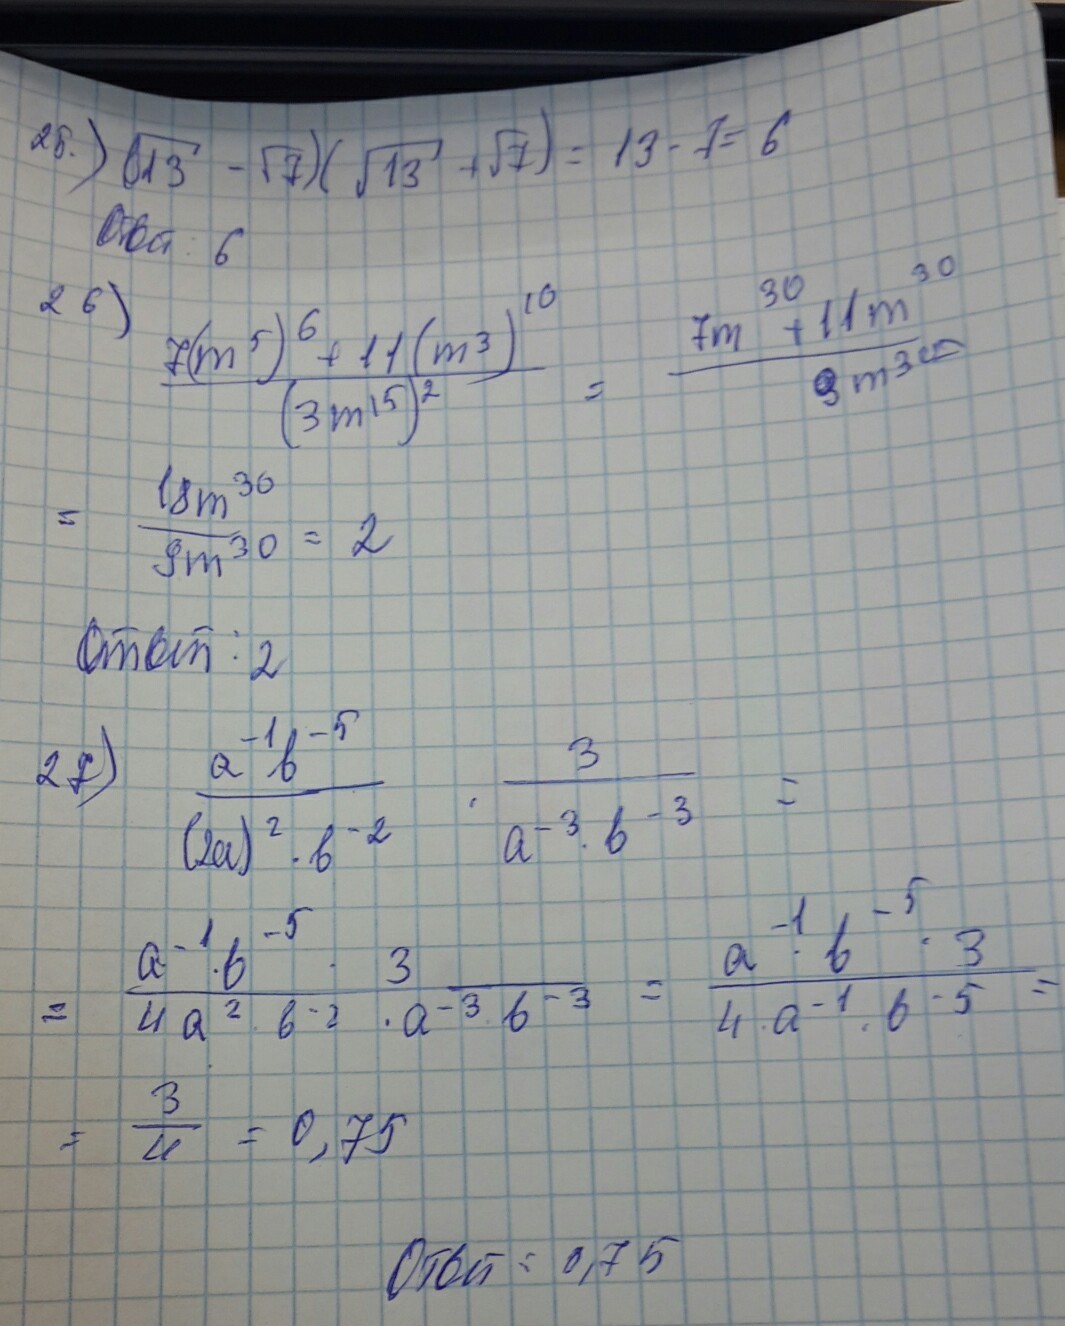 25.) (√13 - √7)(√13 + √7) = 13 - 7 = 6
Ответ: 6
26) (7(m⁵)⁶ + 11(m³)¹⁰)/(3m¹⁵)² = (7m³⁰ + 11m³⁰)/(9m³⁰)
= 18m³⁰/9m³⁰ = 2
Ответ: 2
27) (a⁻¹b⁻⁵)/((2a)²·b⁻²) · 3/(a⁻³·b⁻³) =
= (a⁻¹·b⁻⁵ · 3)/(4a²·b⁻²·a⁻³·b⁻³) = (a⁻¹·b⁻⁵·3)/(4·a⁻¹·b⁻⁵) =
= 3/4 = 0,75
Ответ: 0,75